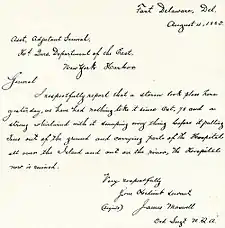 Fort Delaware, Del.
August 4, 1885.
Asst. Adjutant General,
Hd. Qrs. Department of the East.
New York Harbor
General
I respectfully report that a storm took place here
yesterday, we have had nothing like it since Oct, 78 and a
strong whirlwind with it sweeping every thing before it pulling
trees out of the ground and carrying parts of the Hospital
all over the Island and out on the river, the Hospital
now is ruined.
Very respectfully
Your Obedient Servant
(Signed) James Maxwell
Ord. Sergt. U.S.A.